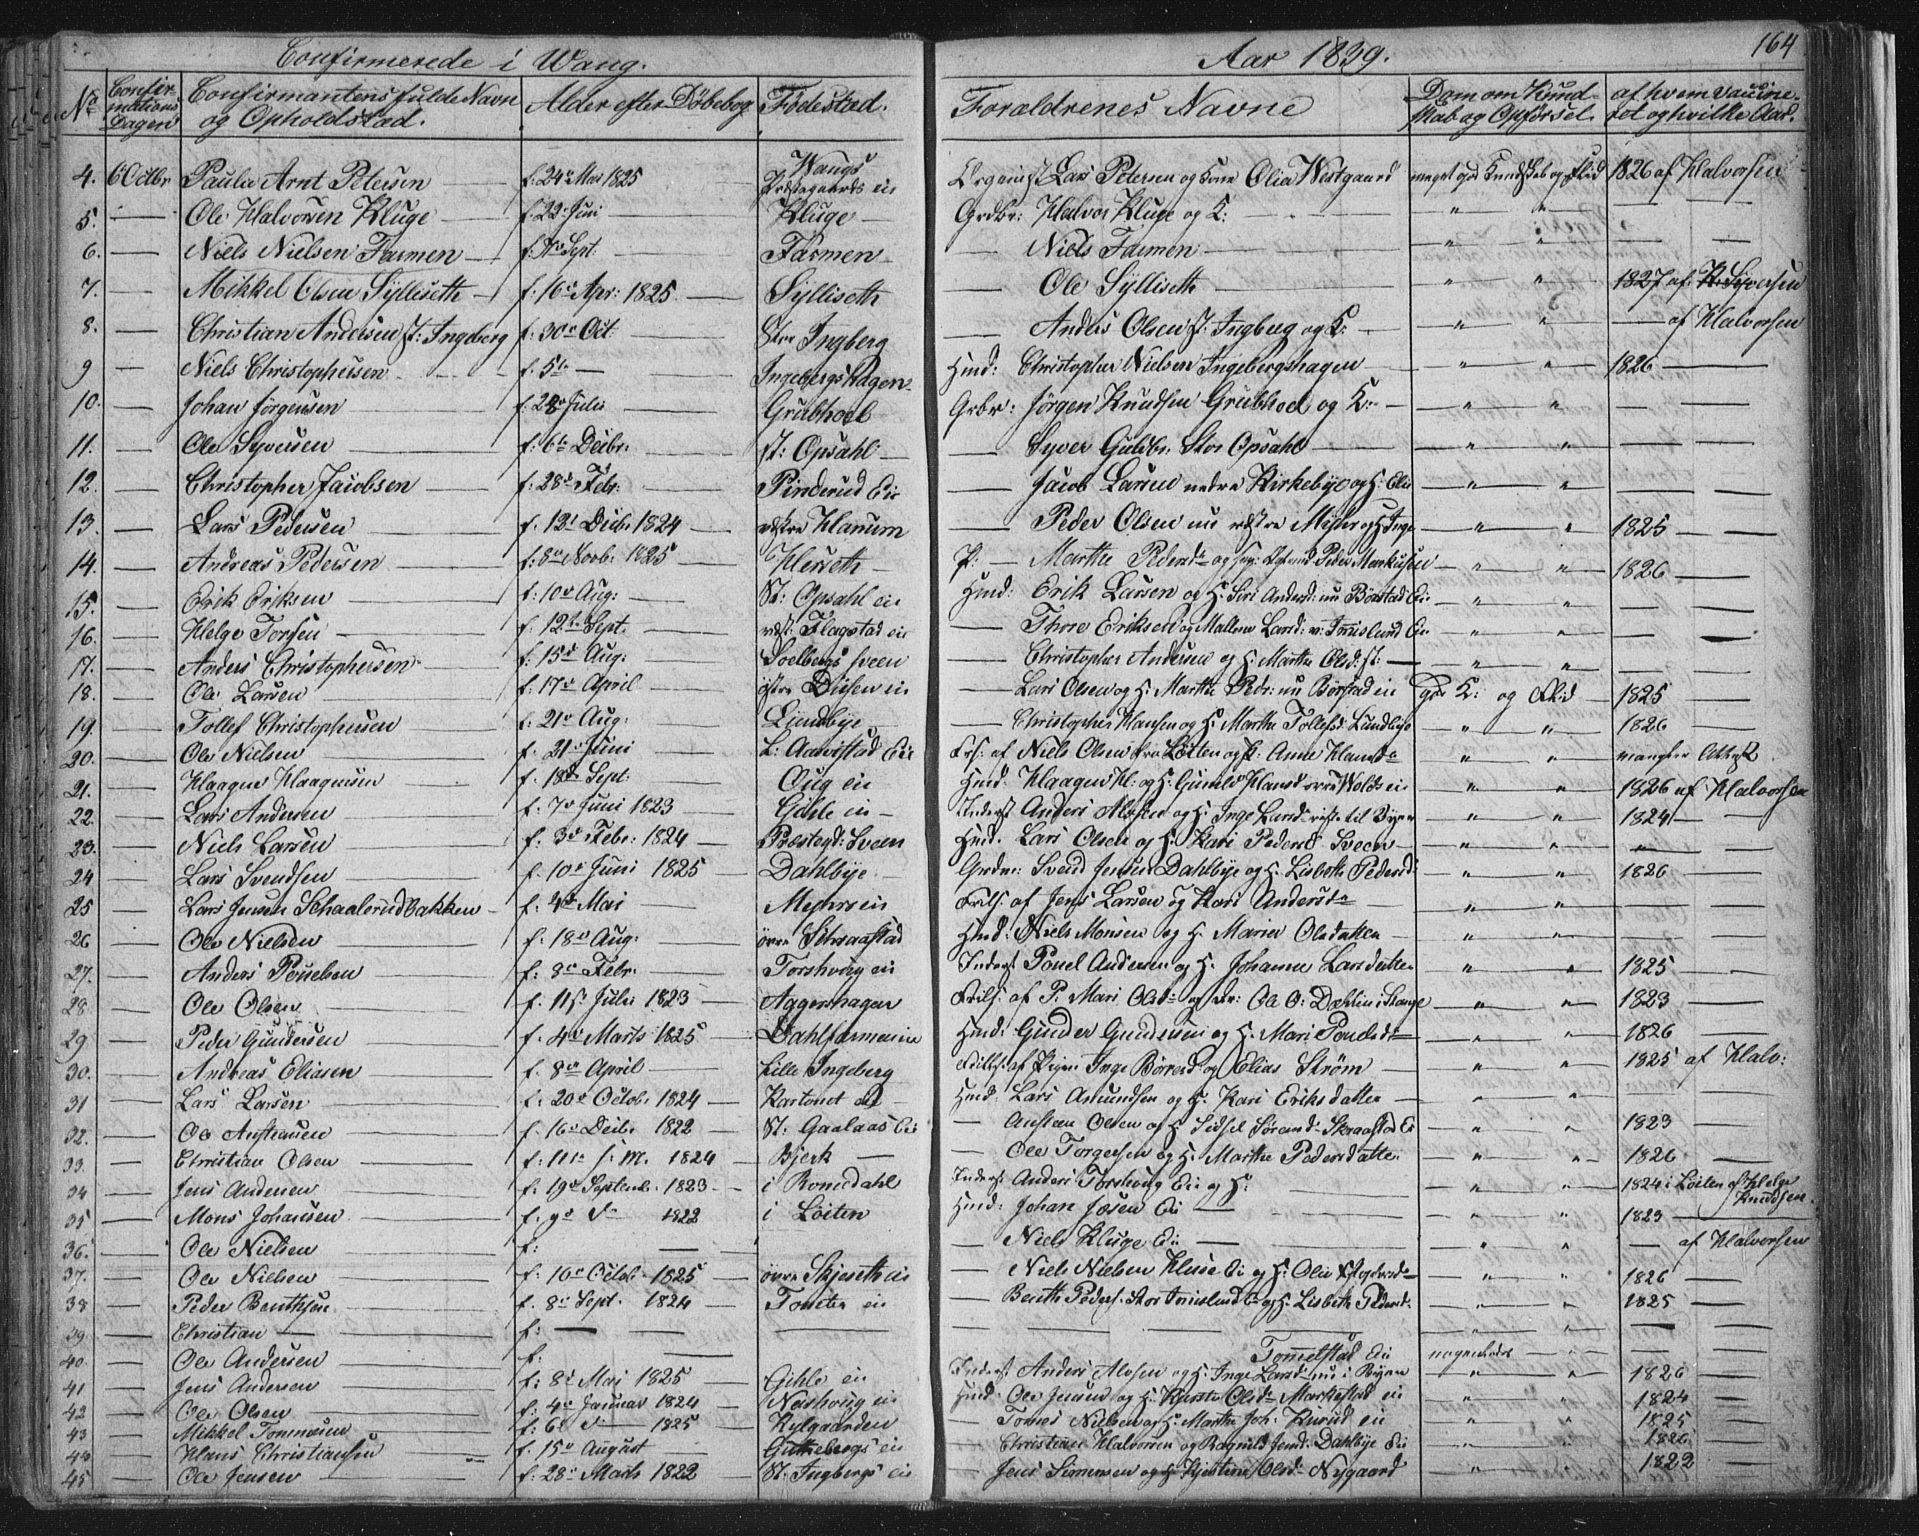 Confirmerede i Wang. Aar 1839. 164
No Confirmations Dagen Confirmantens fulde Navn og Opholdstad. Alder efter Døbebog Fødestad. Forældrenes Navne Dom om Kundskab og Opførsel. af hvem vaccineret og hvilke Aar.
4. 6 Octbr Paulu Arnt Petersen f. 24de Mai 1825 Wangs Præstegaards ei Organist Lars Petersen og Kone Olia Westgaard meget god Kundskab og Flid 1826 af Halvorsen
5. — Ole Halvorsen Kluge f. 22 Juni Kluge — Grdbr: Halvor Kluge og K: " " — —
6. — Niels Nielsen Farmen — f. Sept. Farmen — — Niels Farmen — " " — —
7. — Mikkel Olsen Sylliseth — f. 16de Apr: 1825 — Sylliseth — Ole Sylliseth — " " 1827 af Syversen
8. — Christian Andersen st: Ingeberg f. 30te Oct. — Stor Ingberg — Anders Olsen st. Ingberg og K: — " " — af Halvorsen
9 — Niels Christophersen f. 5te — Ingebergs Hagen Huusd: Christopher Nielsen Ingebergshagen " " 1826 —
10. — Johan Jørgensen f. 28de Julii — Grubhoel — Grbr: Jørgen Knudsen Grubhoel og K: — " " — —
11. — Ole Syversen f. 6te Decbr: — st: Opsahl — — Syver Guldbr. Stor Opsahl " " — —
12. — Christopher Jacobsen f. 28de Febr: — Pinderud Ei — Jacob Larsen nedre Kirkebye og H. " " — —
13. — Lars Pedersen f. 12t Decbr. 1824 — vestre Hanum — Peder Olsen nu vestre og H. Inge " " 1825 —
14. — Andreas Pedersen f. 8de Novb. 1825 — Herseth — P: — Marthe Pedersd: Peder Markusen " " 1826 —
15. — Erik Eriksen f. 10de Aug: — St: Opsahl ei Huusd: Erik Larsen og H. Siri Andersd: nu Børstad Ei " " — —
16. — Helge Torsen — f. 12te Sept. — vest: Flagstad ei — Thore Eriksen og Mallene Larsd: Imislund Ei " " — —
17. — Anders Christophersen f. 15de Aug: — Soelbergs sveen — Christopher Andersen og H. Marthe Olsd: st: — " " — —
18. — Ole Larsen f. 17de April — østre Diisen ei — Lars Olsen og H. Marthe Pedr: nu Børstad ei god K: og Flid 1825 —
19. — Tollef Christophersen f. 21de Aug: — Lundbye — — Christopher Hansen og H. Marthe Tollefsd. Lundbye " " 1826 —
20. — Ole Nielsen f. 21de Juni L: Aamstad Ei Frs: af Niels Olsen fra Løiten og P: Anne Hansd " " mangler Attest
21. — Haagen Haagensen f. 18de Sept: — Oug ei Huusd: Haagen H: og H: Gunild Hansd øvre Wolds ei " " 1826 af Halvorsen
22. — Lars Andersen f. 7de Juni 1823 — Gihle ei — Inderst Anders Alvsen og H. Inge Larsd til Byen " " 1824 —
23. — Niels Larsen f. 3de Febr: 1824 — Præstegd: Sveen Huusd. Lars Olsen og H. Kari Pedersd Sveen — " " — —
24 — Lars Svendsen f. 10de Juni 1825 — Dahlbye — Grdm: Svend Jensen Dahlbye og H. Lisbeth Pedersd: " " 1826 —
25 — Lars Jensen Schaalerudbakken f. 4de Mai — Myhrs ei Frils: af Jens Larsen og Kari Andersd " " — —
26 — Ole Nielsen f. 18de Aug: — øvre Schraastad Huusd: Niels Monsen og H. Marie Olsdatter — " " — —
27. — Anders Pouelsen f. 8de Febr: — Torshoug ei Inderst Pouel Andersen og H. Johanne Larsdatter " " 1825 —
28 — Ole Olsen f. 11te Julii 1823 — Aggerhagen Frils: af P. Mari Olsd og Ole O: Dahlen i Stange " " 1823 —
29 — Peder Gundersen f. 4de Marts 1825 — Dahlfarmen ei Huusd: Gunder Gundersen og H. Mari Pouelsd — " " 1826 —
30. — Andreas Eliasen f. 8de April — Lille Ingeberg af Pigen Inge Børresd og Elias Strøm — " " 1825 af Halv:
31 — Lars Larsen f. 20de Octob. 1824 — Kartomt ei Huusd: Lars Amundsen og H. Kari Eriksdatter — " " — —
32. — Ole Anstensen f. 16de Decbr. 1822 — St. Gaalaas Ei — Austen Olsen og H. Sidsel Skraastad Ei " " 1823 —
33. — Christian Olsen f. 11te s. M. 1824 — Bjerk — — Ole Torgersen og H. Marthe Pedersdatter " " 1826 —
34 — Jens Andersen f. 19de Septemb. 1823 — i Romedahl Inderst: Anders Torshoug Ei og H: — 1824 i Løiten af Helge Knudsen
35 — Mons Johansen f. 9de 1822 i Løiten Huusd: Johan Josen Ei — " " 1823 —
36. — Ole Nielsen f. — — Niels Kluge Ei — " " — af Halvorsen
37. — Ole Nielsen f. 10de Octob. 1825 — øvre Skjeseth ei — Niels Nielsen Kluse Ei og H. Olia — " " 1826 —
38 — Peder Benthsen f. 8de Sept. 1824 — Tomter ei — Benth Peders. Stor Imislund Ei og H. Lisbeth Pedersd. " " 1825 —
39 — Christian — f. — — — — — — " " — —
40. — Ole Andersen f. — — Tommelstad Ei nogenledes — —
41 — Jens Andersen f. 8de Mai 1825 — Gihle ei Inderst Anders Alvsen og H. Inge Larsd nu i Byen " " 1826 —
42 — Ole Olsen f. 4de Januar 1824 — Neshoug ei Huusd: Ole Jensen og H. Kirste Olsd Markestad ei " " 1824 —
43 — Mikkel Tommesen f. 6te 1825 — Rylgaarden — Tomes Nielsen og H. Marthe Joh. ei " " 1825
44 — Hans Christiansen f. 15de August — Guttebergs ei — Christian Halvorsen og Ragnild Jensd. Dahlbye Ei " " 1826
45 — Ole Jensen — f. 28de Marts 1822 — St. Ingbergs ei — Jens Simensen og H. Kjerstine Olsd Nygaard " " 1822